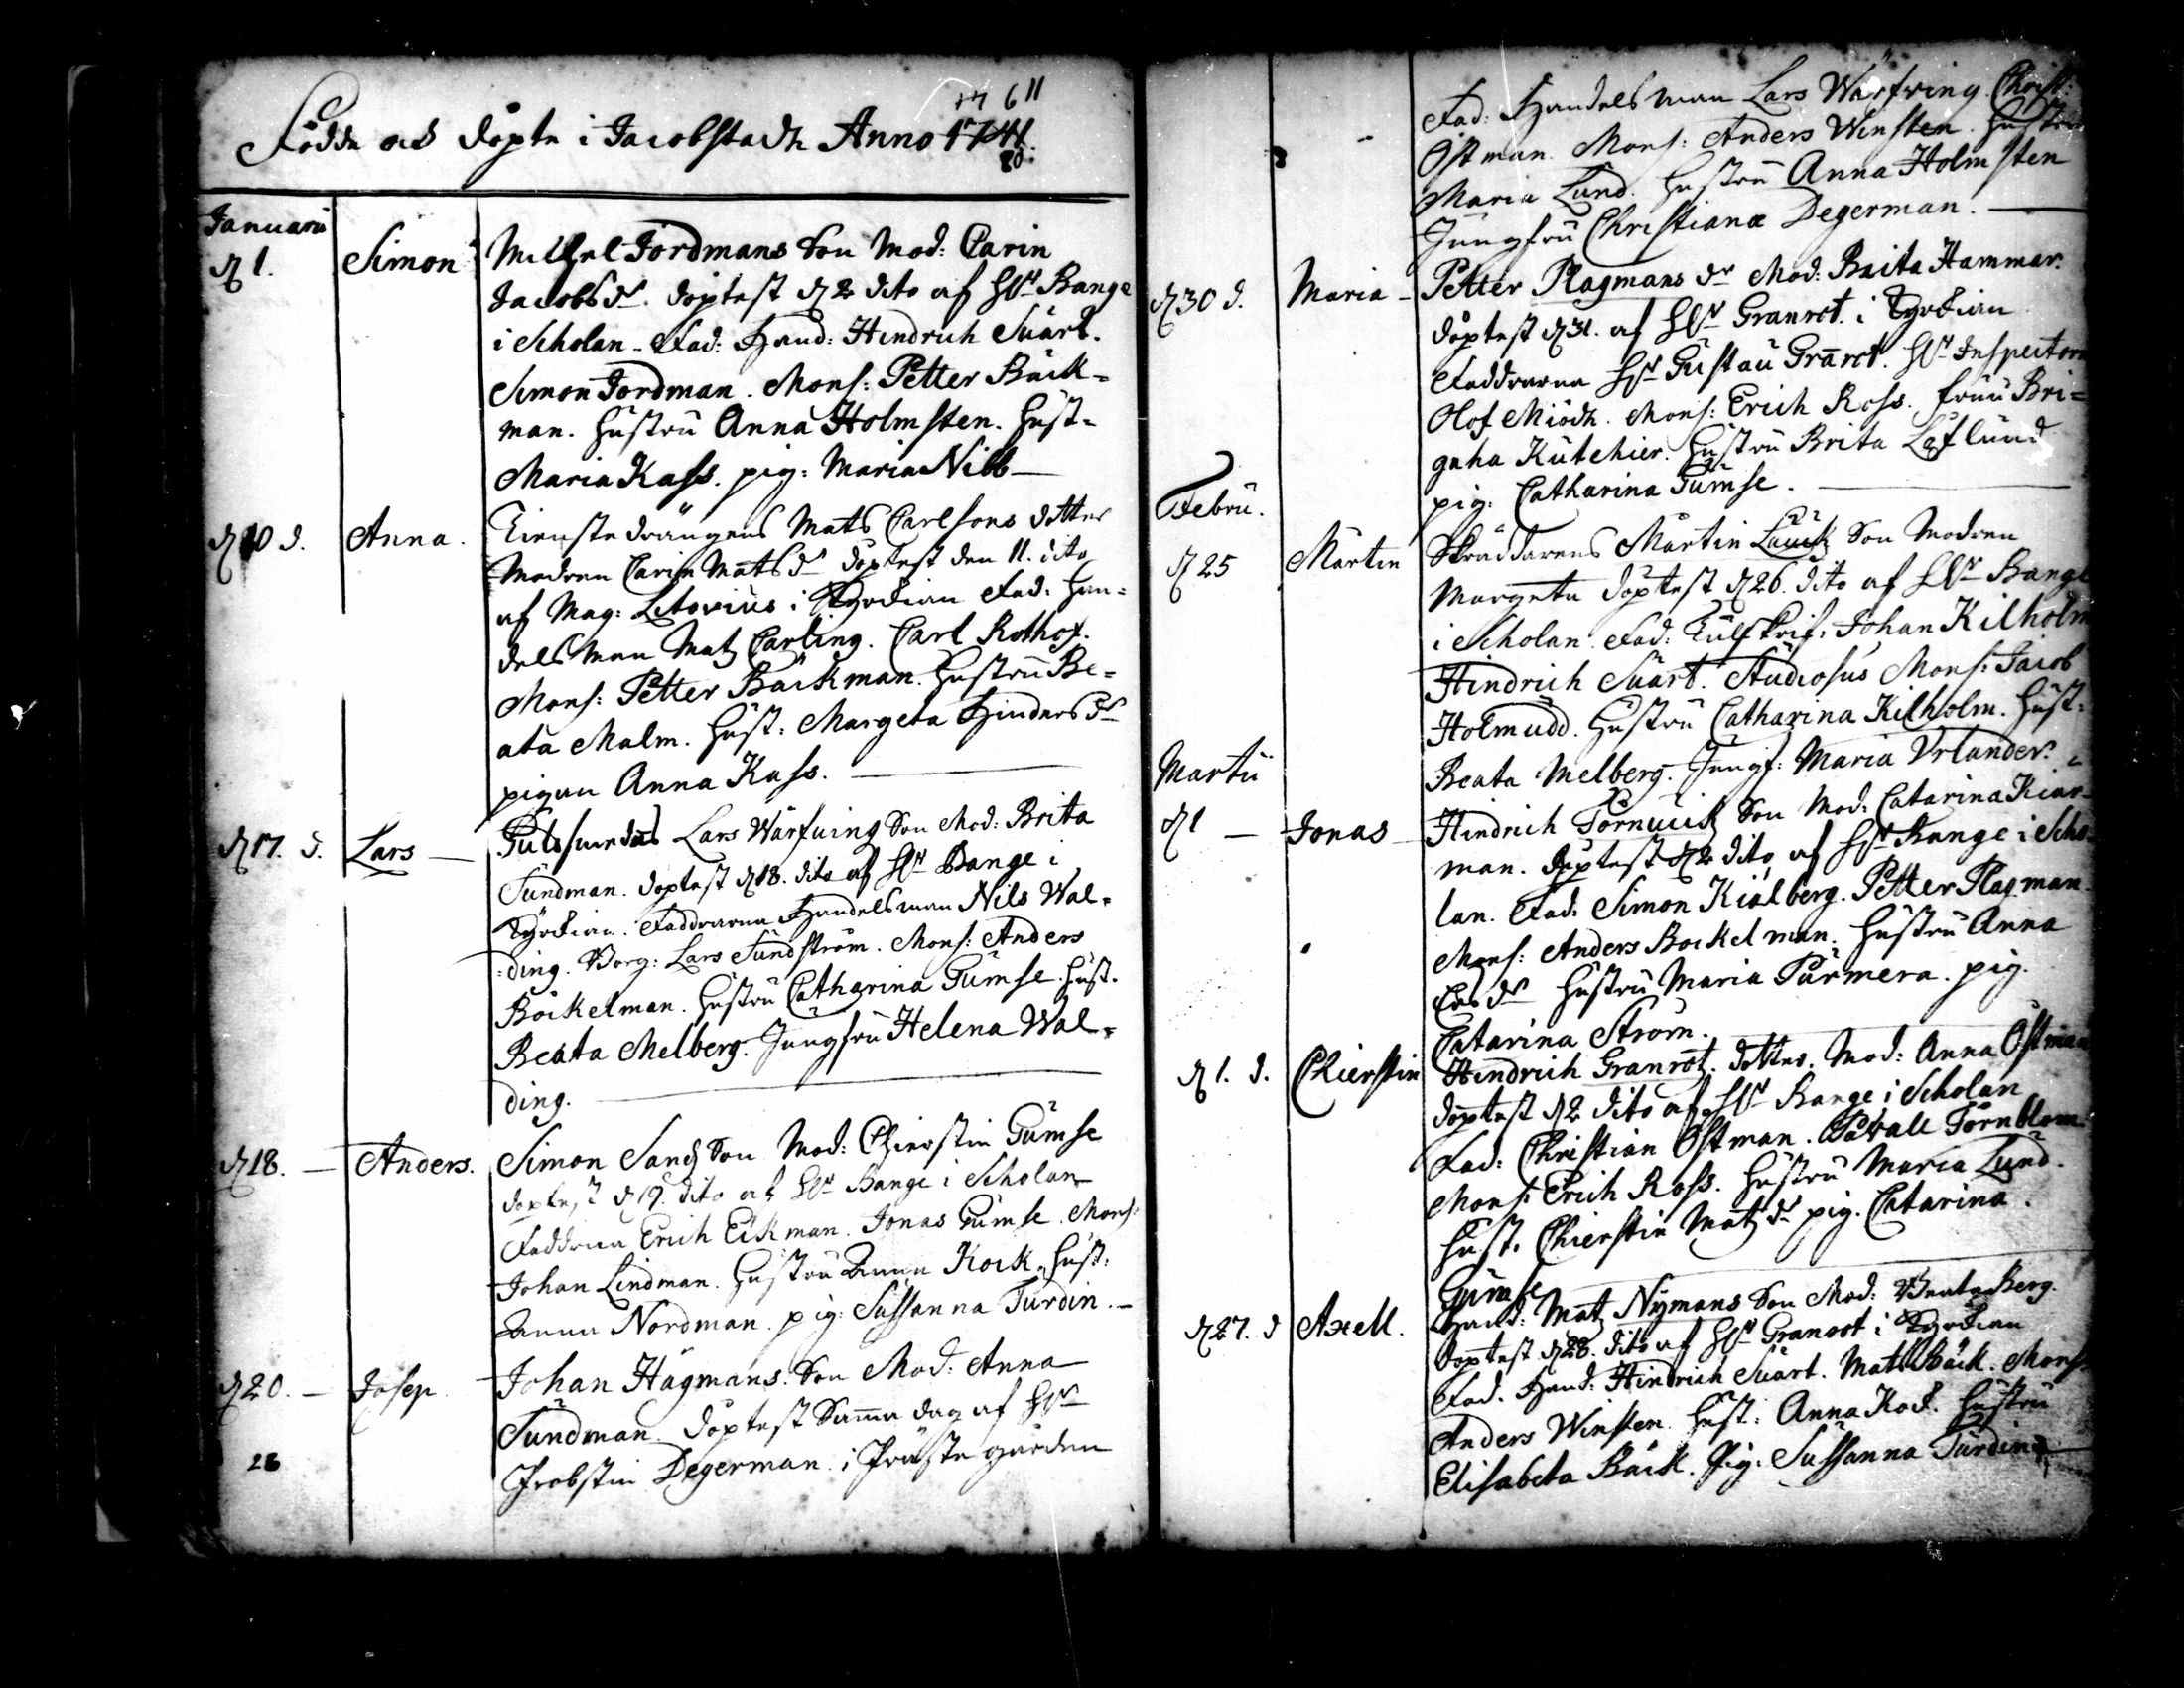 17 611
Födde och döpte i Jacobstadh Anno 1741.
80.
Januarii
d 1.
Simon
Michel Jordmans Son Mod: Carin
Jacobs dr. döptest d 2 dito af Hr Bange
i Scholan. Fad: Hand: Hindrich Suart.
Simon Jordman. Mons: Petter Bäck=
man. Hustru Anna Holmsten. Hust=
Maria Kass. pig: Maria Nibb
d 10 d.
Anna.
Tienstedrängens Mats Carlsons dotter
Modren Carin Mats dr döptest den 11. dito
af Mag: Litovius i Kyrckian Fad: Han=
delsman Matz Carling. Carl Rothof.
Mons: Petter Bäckman. Hustru Be=
ata Malm. Hust: Margeta Hinders dr
pigan Anna Kass.
d 17. d.
Lars
Lars Wärfuing Son Mod: Brita
Sundman. döptest d 18. dito af Hr Bange i
Kyrckian. Faddrarna Handelsman Nils Wal=
ding. Borg: Lars Sundström. Mons: Anders
Böckelman. Hustru Catharina Gumse. Hust.
Beata Melberg. Jungfru Helena Wal=
ding.
d 18.
Anders.
Simon Sandz Son Mod: Chierstin Gumse
döptest d 19. dito af Hr Bange i Scholan
Faddrna Erich Eckman. Jonas Gumse. Mons:
Johan Lindman. Hustru Anna Kock. Hust:
Anna Nordman. pig: Sussanna Turdin.
d 20.
Josep
Johan Hägmans. Son Mod: Anna
Sundman. döptest Samma dag af Hr
Probstin Degerman i Prästegården
28
Fad: Handelsman Lars Wärfving. Christ:
Östman. Mons: Anders Winsten. Hustru
Maria Lund. Hustru Anna Holmsten
Jungfru Christiana Degerman.
d 30 d.
Maria
Petter Plagmans dr Mod: Brita Hammar.
döptest d 31. af Hr Granrot. i Kyrckian
Faddrarna Hr Gustau Granrot. Hr Inspectorn
Olof Miödh. Mons: Erich Ross. fruu Bri=
gaha Kutchier. Hustru Brita Löflund
pig: Catharina Gumse.
Febru.
d 25
Martin
Skräddarens Martin Lauck Son Modren
Margeta döptest d 26. dito af Hr Bange
i Scholan. Fad: Tulskrif: Johan Kilholm
Hindrich Suart. Studiosus Mons: Jacob
Holmudd. Hustru Catharina Kilholm. Hust:
Beata Melberg. Jungf: Maria Urlander.
Martii
d 1
Jonas
Hindrich Törnuick Son Mod: Catarina Kiär=
man. döptest d 2 dito af Hr Bange i Scho=
lan. Fad: Simon Kiälberg. Petter Plagman.
Mons: Anders Böckelman. Hustru Anna
Ers dr Hustru Maria Purmera. pig.
Catarina Ström.
d 1. d.
Chierstin
Hindrich Granrot. dotter. Mod: Anna Östman
döptest d 2 dito af Hr Bange i Scholan
Fad: Christian Östman. Påvall Törnblom.
Mons: Erich Ross. Hustru Maria Lund.
Hust. Chierstin Matz dr pig. Catarina.
Gumse
d 27. d
Axell.
Hand: Matz Nymans Son Mod: Beata Berg.
döptest d 28. dito af Hr Granrot i Kyrckian
Fad. Hand: Hindrich Suart. Mats Bäck. Mons:
Anders Winsten. Hust: Anna Kock. Hustru
Elisabeta Bäck. Pig: Sussanna Turdin